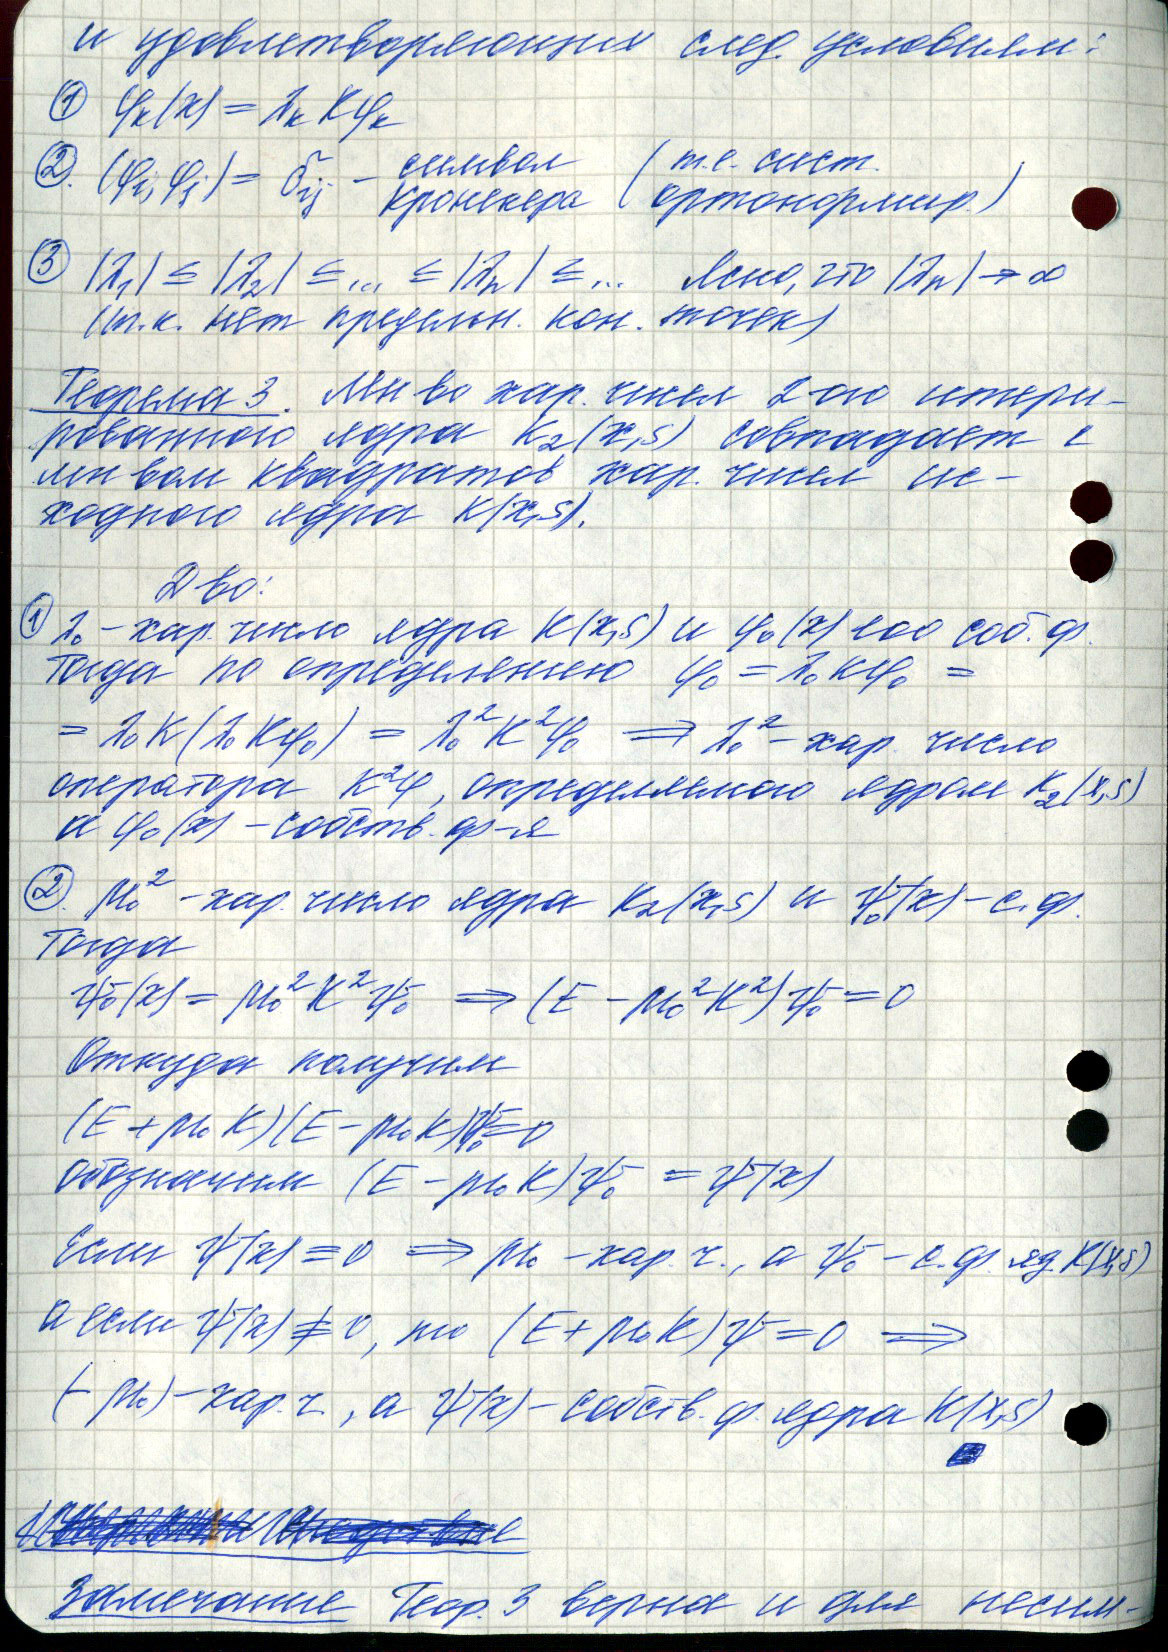 и удовлетворяющих след. условиям:
① φₖ(x) = λₖ Kφₖ
②. (φᵢ, φⱼ) = δᵢⱼ – символ Кронекера (т.е. сист. ортонормир.)
③ |λ₁| ≤ |λ₂| ≤ ... ≤ |λₙ| ≤ ... Ясно, что |λₙ| → ∞
(т.к. нет предельн. кон. точек)
Теорема 3. Мн-во хар. чисел 2-ого итери-
рованного ядра K₂(x,s) совпадает с
мн-вом квадратов хар. чисел ис-
ходного ядра K(x,s).
Д-во:
① λ₀ – хар. число ядра K(x,s) и φ₀(x) его соб. ф.
Тогда по определению φ₀ = λ₀Kφ₀ =
= λ₀K(λ₀Kφ₀) = λ₀²K²φ₀ ⟹ λ₀² – хар. число
оператора K²φ, определяемого ядром K₂(x,s)
а φ₀(x) – собств. ф-я
②. μ₀² – хар. число ядра K₂(x,s) и ψ₀(x) – с.ф.
Тогда
ψ₀(x) = μ₀²K²ψ₀ ⟹ (E – μ₀²K²)ψ₀ = 0
Откуда получим
(E + μ₀K)(E – μ₀K)ψ₀ = 0
Обозначим (E – μ₀K)ψ₀ = ψ(x)
Если ψ(x) ≡ 0 ⟹ μ₀ – хар. ч., а ψ₀ – с.ф. яд. K(x,s)
А если ψ(x) ≢ 0, то (E + μ₀K)ψ = 0 ⟹
(–μ₀) – хар. ч., а ψ(x) – собств. ф. ядра K(x,s)
Замечание Теор. 3 верна и для несим-